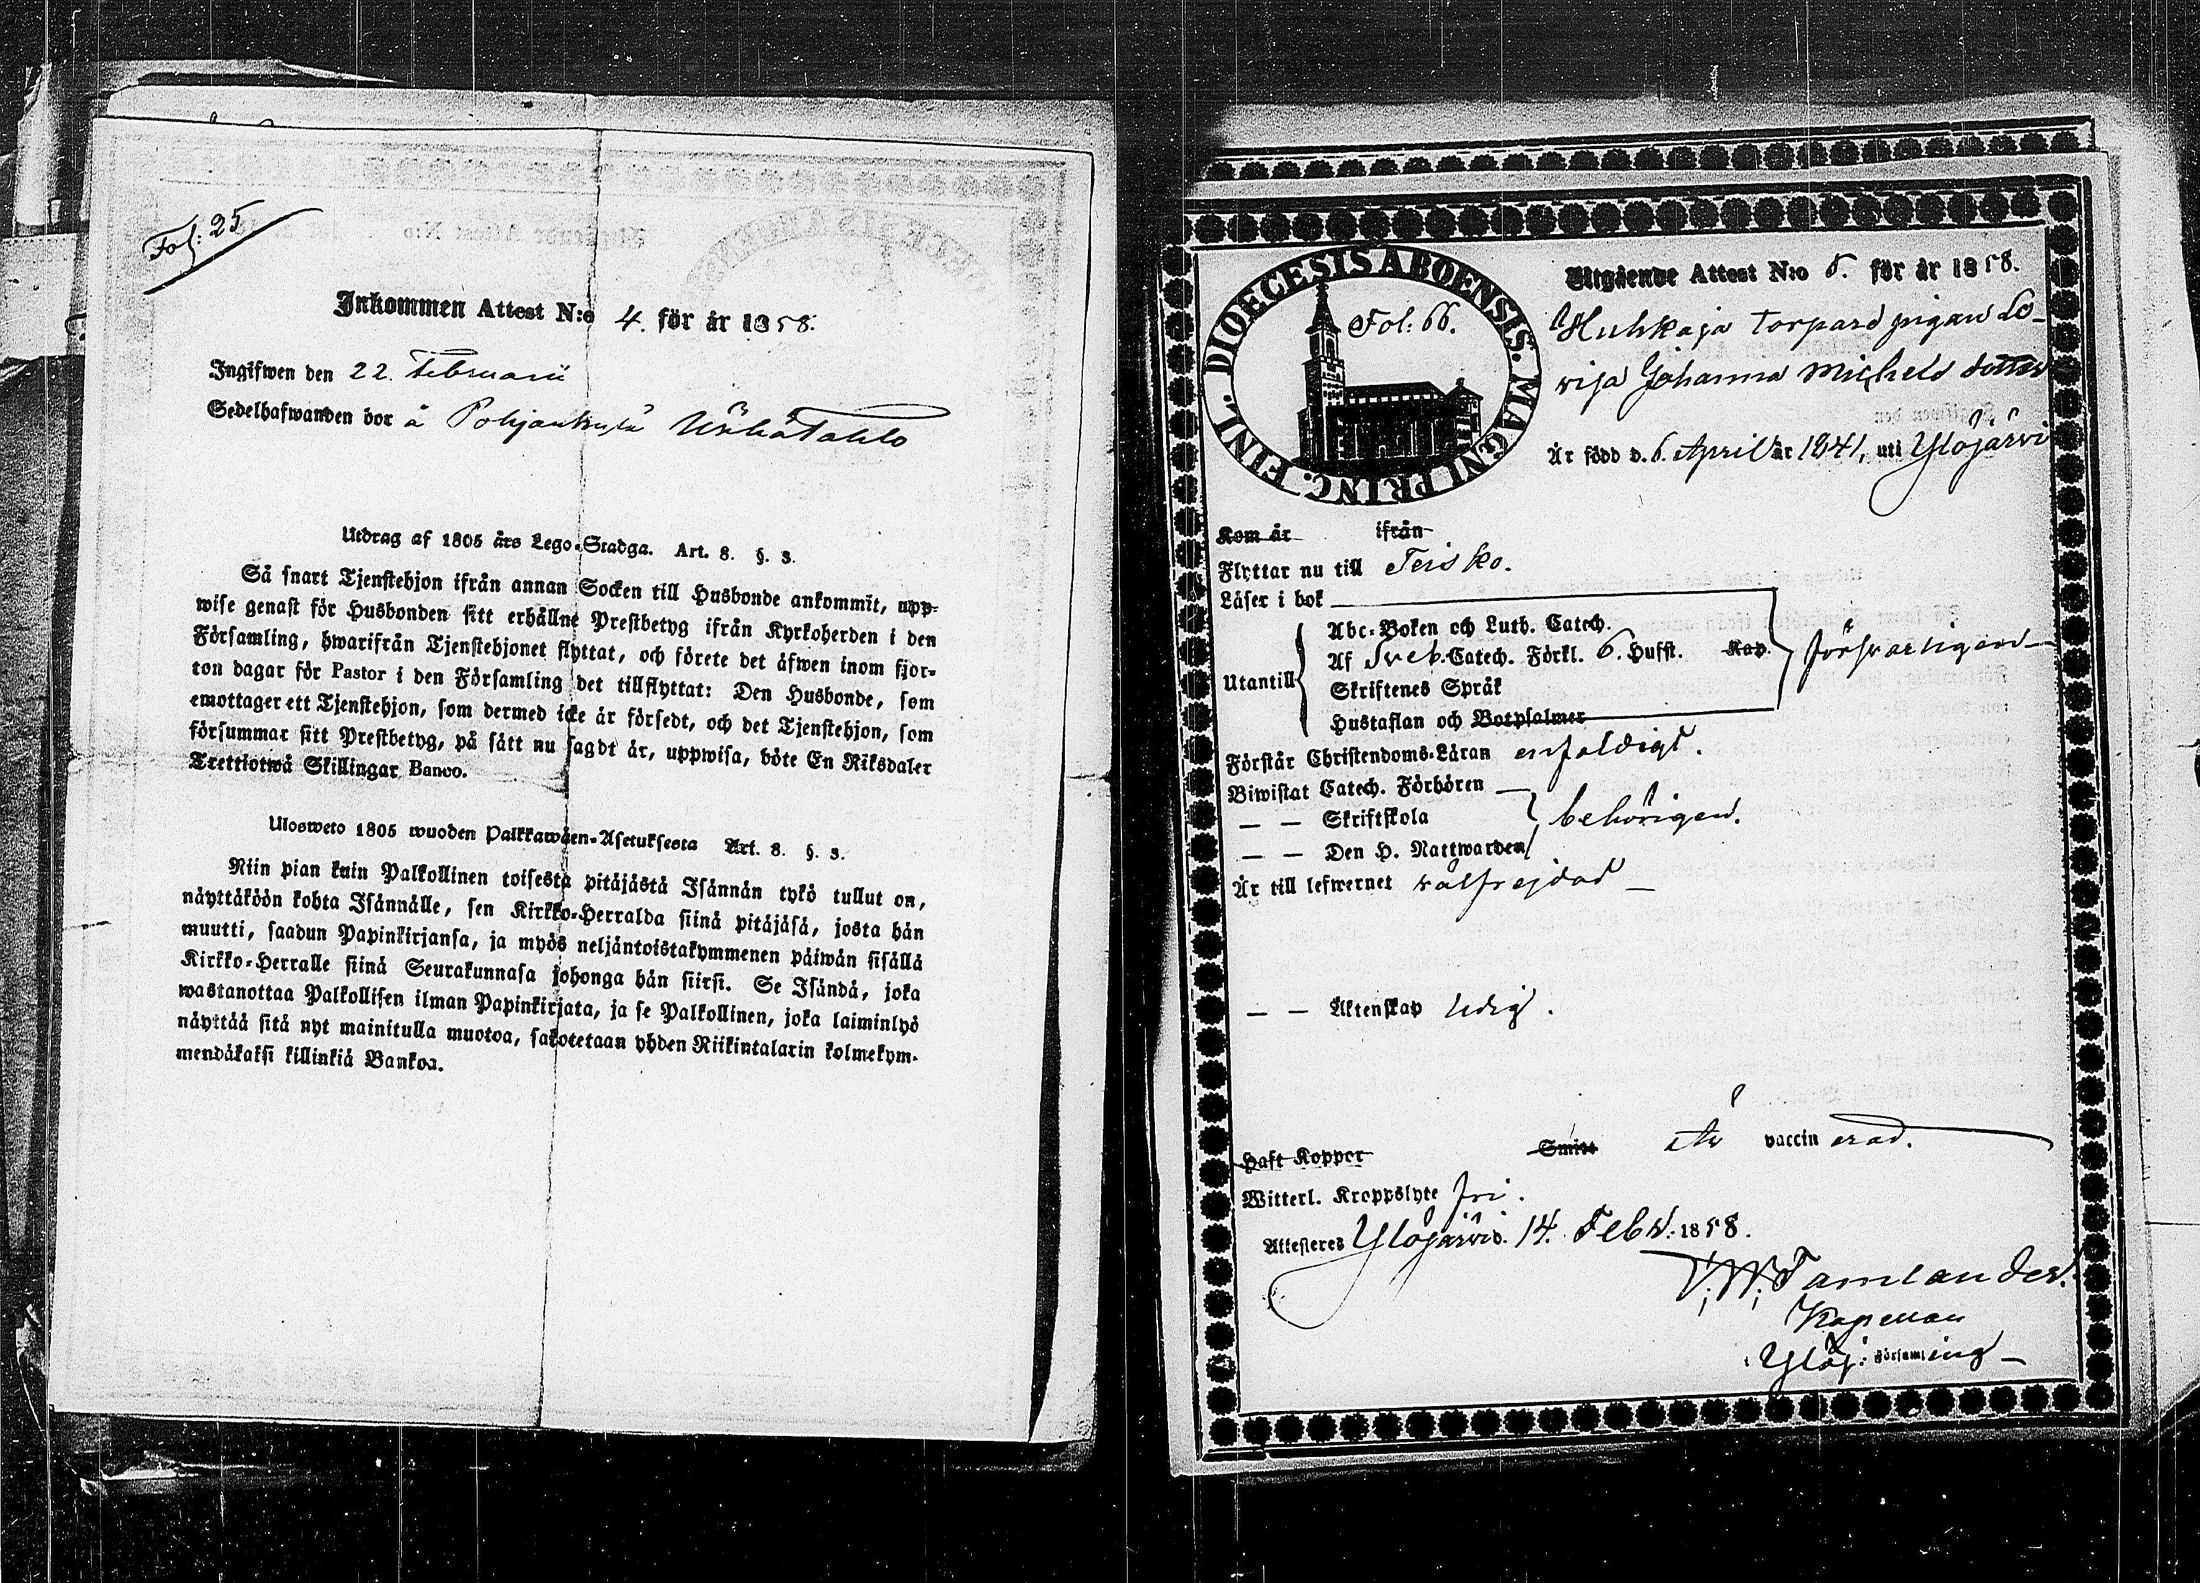 Fol: 25
Inkommen Attest N:o 4. för år 1858.
Ingifwen den 22. Februarii
Sedelhafwanden bor å Pohjankylä Ukkåtahlo
Utdrag af 1805 års Lego-Stadga. Art. 8. §. 3.
Så snart Tjenstehjon ifrån annan Socken till Husbonde ankommit, upp-
wise genast för Husbonden sitt erhållne Prestbetyg ifrån Kyrkoherden i den
Församling, hwarifrån Tjenstehjonet flyttat, och förete det äfwen inom fjor-
ton dagar för Pastor i den Församling det tillflyttat: Den Husbonde, som
emottager ett Tjenstehjon, som dermed icke är försedt, och det Tjenstehjon, som
försummar sitt Prestbetyg, på sätt nu sagdt är, uppwisa, böte En Riksdaler
Trettiotwå Skillingar Banco.
Ulosweto 1805 wuoden Palkkawäen-Asetuksesta Art. 8. §. 3.
Niin pian kuin Palkollinen toisesta pitäjästä Isännän tykö tullut on,
näyttäköön kohta Isännälle, sen Kirkko-Herralda siinä pitäjäsä, josta hän
muutti, saadun Papinkirjansa, ja myös neljäntoistakymmenen päiwän sisällä
Kirkko-Herralle siinä Seurakunnasa johonga hän siirsi. Se Isändä, joka
wastanottaa Palkollisen ilman Papinkirjata, ja se Palkollinen, joka laiminlyö
näyttää sitä nyt mainitulla muotoa, sakotetaan yhden Riikintalarin kolmekym-
mendäkaksi killinkiä Bankoa.
DIOECESIS ABOENSIS. MAGNI PRINC. FINL.
Fol: 66.
Utgående Attest N:o 5. för år 1858.
Huhkaja torpard pigan Lo-
wisa Johanna Michels dotter
Är född d. 6. April år 1841, uti Ylöjärvi
Kom år ifrån
Flyttar nu till Teisko.
Läser i bok
Abc-Boken och Luth. Catech.
Af Sveb. Catech. Förkl. 6. Hufst. Kap. försvarligen
Utantill
Skriftenes Språk
Hustaflan och Botpsalmer
Förstår Christendoms-Läran enfaldigt.
Biwistat Catech. Förhören
— — Skriftskola behörigen.
— — Den H. Nattwarden
Är till lefwernet välfrejdad
— — Äktenskap ledig.
Haft Koppor Smitt Är vaccinerad.
Witterl. Kroppslyte fri.
Attesteres Ylöjärvi d. 14. Febr. 1858.
Tamlander.
Kapellan
i Ylöj: Församling